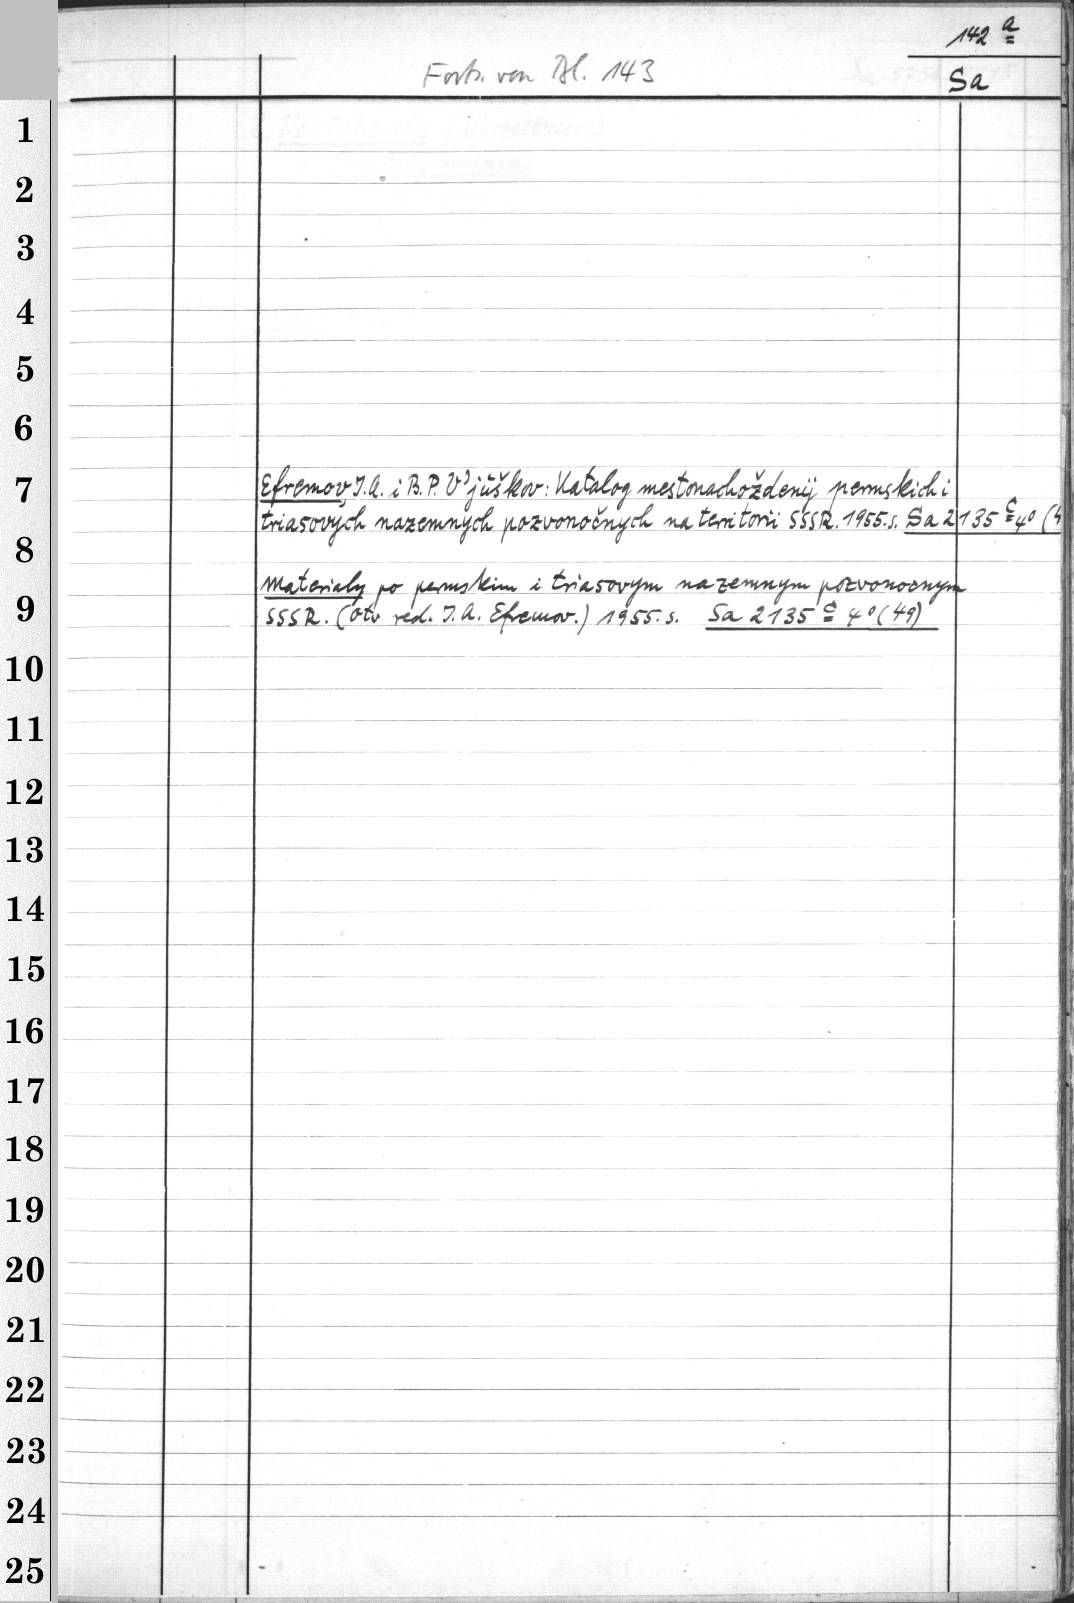 142 a
Forts. von Bl. 143
Sa
1
2
3
4
5
6
7
Efremov, I.A. i B.P. V'juškov: Katalog mestonachoždenij permskich i
triasovych nazemnych pozvonočnych na territorii SSSR. 1955. s. Sa 2135 c 4° (4
8
Materialy po permskim i triasovym nazemnym pozvonocnym
9
SSSR. (Otv red. I.A. Efremov.) 1955. s. Sa 2135 c 4° (49)
10
11
12
13
14
15
16
17
18
19
20
21
22
23
24
25